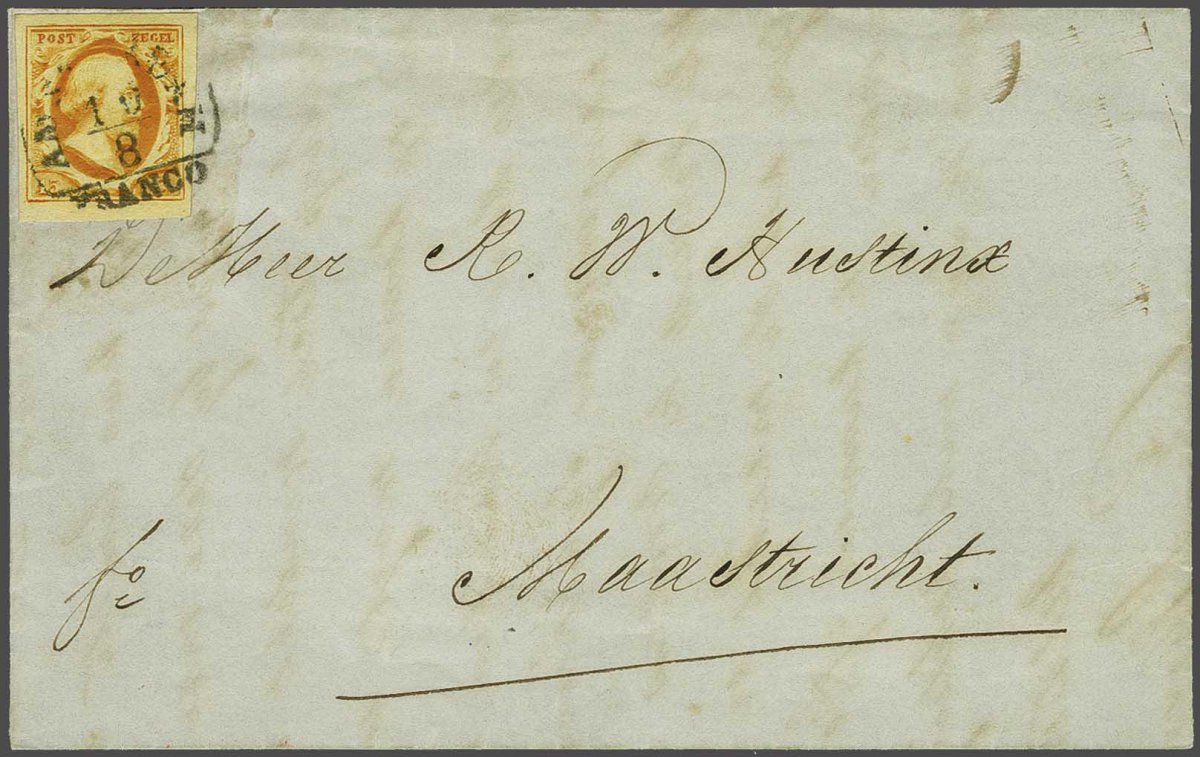 POST ZEGEL
10
8
FRANCO
De Heer R. W. Hustinx
fo
Maastricht.